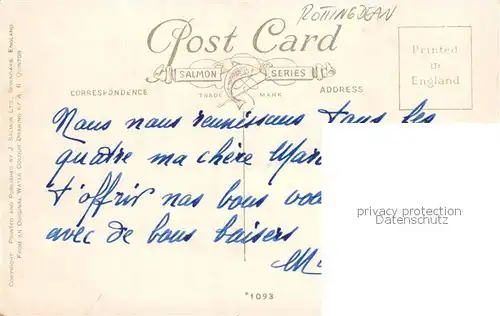 ROTTINGDEAN
Post Card
SALMON SERIES
TRADE MARK
CORRESPONDENCE
ADDRESS
Printed
in
England
COPYRIGHT. PRINTED AND PUBLISHED BY J. SALMON LTD., SEVENOAKS, ENGLAND.
FROM AN ORIGINAL WATER COLOUR DRAWING BY A. R. QUINTON
Nous nous reunissons tous les
quatre ma chère
t'offrir nos bons
avec de bons baisers
privacy protection
Datenschutz
*1093